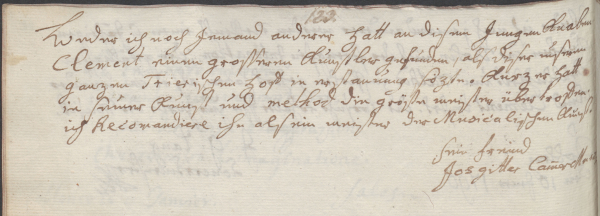 123.
Weder ich noch Jemand anderer hatt an disem Jungen Knaben
Clement einen grösseren Künstler gefunden, als dieser unseren
ganzen Trierischen Hoff in erstaunung sezte. Kurz er hatt
in seiner Kunst und method die gröste meister übertroffen.
ich Recomandiere ihn als ein meister der Musicalischen Kunst.
sein freünd
Jos gitter